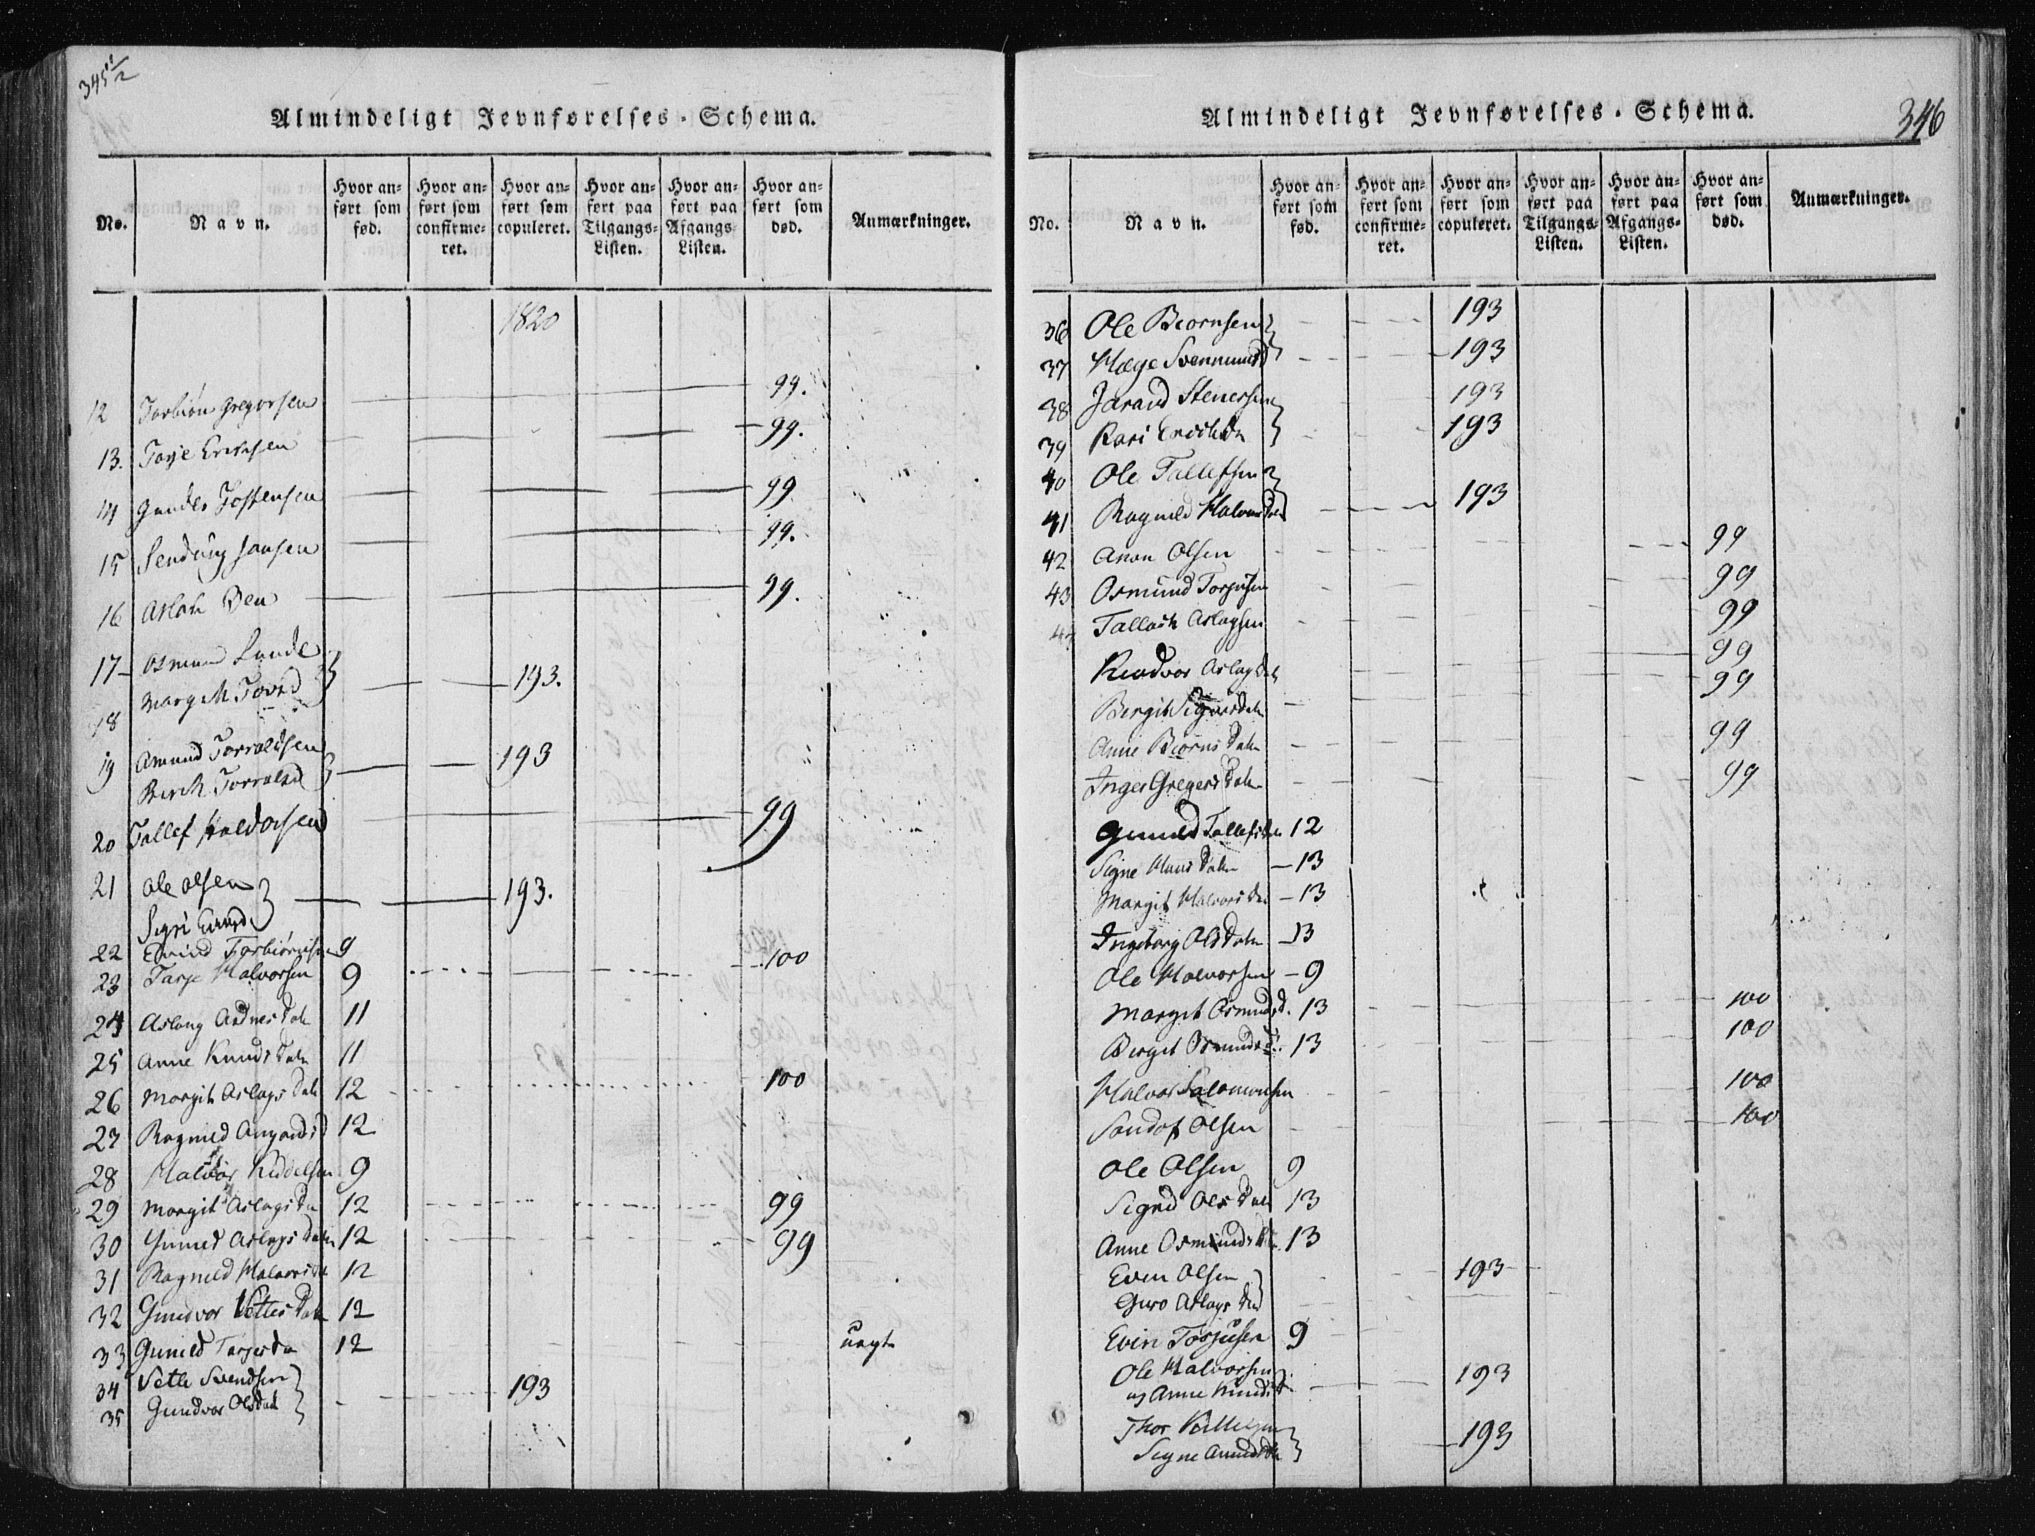 345 1/2
Almindeligt Jevnførelses-Schema.
No. Navn. Hvor anført som fød. Hvor anført som confirmeret. Hvor anført som copuleret. Hvor anført paa Tilgangs-Listen. Hvor anført paa Afgangs-Listen. Hvor anført som død. Anmærkninger.
1820
12 Torbiøn Gregorsen 99.
13. Torje Erichsen 99.
14 Gunder Jostensen 99
15 Sendung Jansen 99.
16 Aslak Ben 99.
17 Osmund Lunde
18 Margit Tovsd 193.
19 Amund Torvaldsen
Torvalsd 193
20 Tallef Haldorsen 99
21 Ole Olsen
Sigri Eivindsd 193.
22 Eivind Torbiørnsen 9
23 Tarje Halvorsen 9 100
24 Aslaug Adnesdatr 11
25 Anne Knudsdatr 11
26 Margit Aslagsdatr 12 100
27 Ragnild 12
28 Halvor Kiddelsen 9
29 Margit Aslagsda 12 99
30 Gunild Aslagsdatr 12 99
31 Ragnild Halvorsda 12
32 Gundvor Vetlesdatr 12
33 Gunild Tarjesda 12 uægt
34 Vetle Svendsen
35 Gundvor Olsdatr 193
346
Almindeligt Jevnførelses-Schema.
No. Navn. Hvor anført som fød. Hvor anført som confirmeret. Hvor anført som copuleret. Hvor anført paa Tilgangs-Listen. Hvor anført paa Afgangs-Listen. Hvor anført som død. Anmærkninger.
36 Ole Biørnsen 193
37 Hæge 193
38 Jaravd Stenersen 193
39 Kari 193
40 Ole Tallefsen
41 Ragnild Halvorsdatr 193
42 Anon Olsen 99
43 Osmund Torjusen 99
44 Tallach Aslagsen 99
Aslagsdatr 99
Bergit Sigurdsdatr 99
Anne Biørnsdatr 99
Inger Gregersdatr 99
Gunild Tallefsdatr 12
Signe Hansdatr 13
Margit Halvorsdatr 13
Ingeborg Olsdatr 13
Ole Halvorsen 9
Margit Osmundsd. 13 100
Birgit Osmundsd. 13 100
Halvor Salomonsen 100
Sandof Olsen 100
Ole Olsen 9
Sigrid Olsdatr 13
Anne Osmundsdtr 13
Even Olsen 193
Guro Aslagsdtr
Evin Torjusen 9
Ole Halvorsen 193
og Anne Knudsd
Thor 193
Signe Amundsdtr